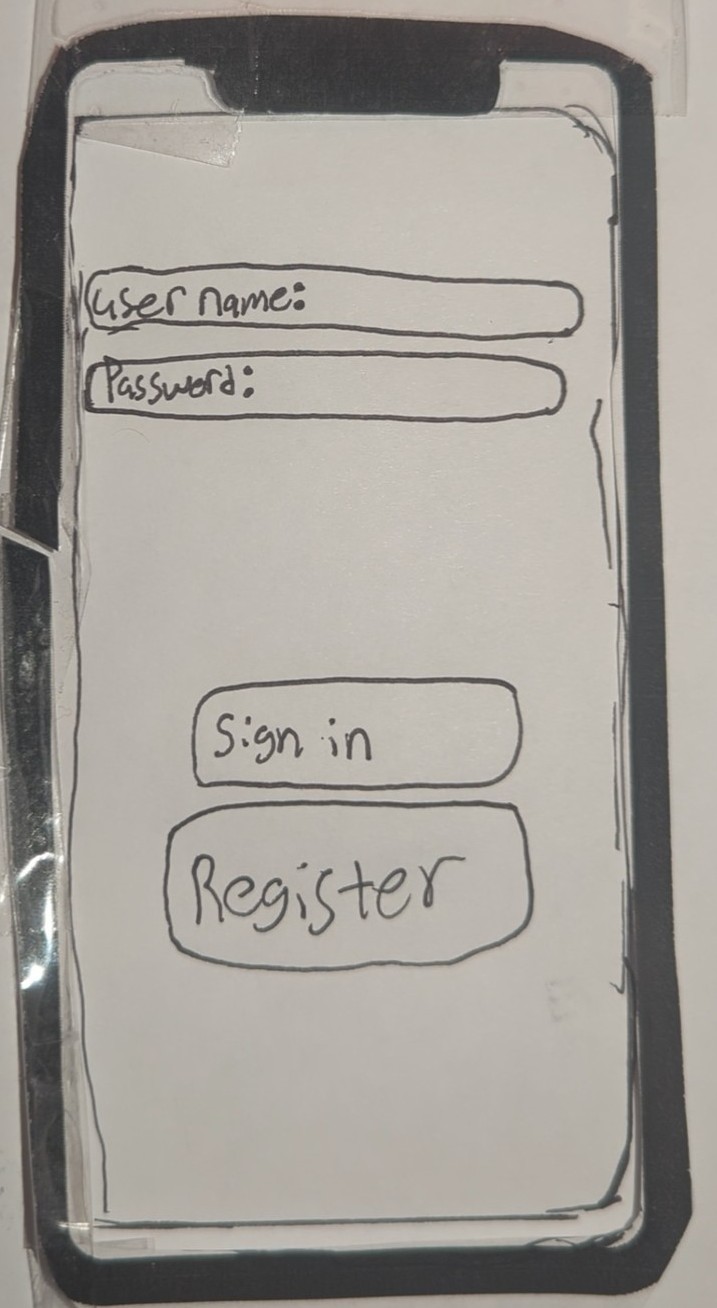 user name:
Password:
Sign in
Register